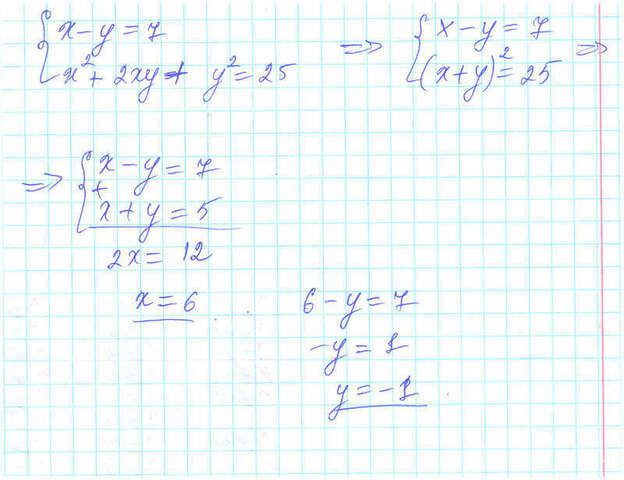 { x - y = 7
x² + 2xy + y² = 25
=> { x - y = 7
(x+y)² = 25 =>
=> { x - y = 7
+
x + y = 5
2x = 12
x = 6
6 - y = 7
-y = 1
y = -1